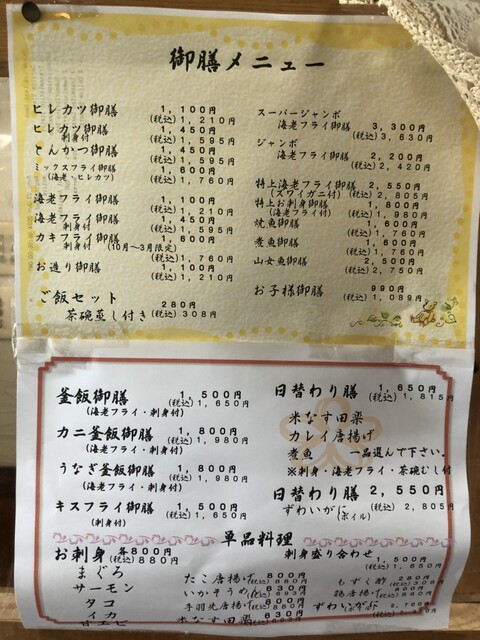 御膳メニュー
ヒレカツ御膳 1,100円
(税込)1,210円
ヒレカツ御膳 1,450円
刺身付 (税込)1,595円
とんかつ御膳 1,450円
(税込)1,595円
ミックスフライ御膳 1,600円
(海老・ヒレカツ) (税込)1,760円
海老フライ御膳 1,100円
(税込)1,210円
海老フライ御膳 1,450円
刺身付 (税込)1,595円
カキフライ御膳 1,600円
刺身付 (10月～3月限定)
(税込)1,760円
お造り御膳 1,100円
(税込)1,210円
ご飯セット 280円
茶碗蒸し付き (税込)308円
スーパージャンボ
海老フライ御膳 3,300円
(税込)3,630円
ジャンボ
海老フライ御膳 2,200円
(税込)2,420円
特上海老フライ御膳 2,550円
(スワイガニ付) (税込)2,805円
特上お刺身御膳 1,800円
(海老フライ付) (税込)1,980円
焼魚御膳 1,600円
(税込)1,760円
煮魚御膳 1,600円
(税込)1,760円
山女魚御膳 2,500円
(税込)2,750円
お子様御膳 990円
(税込)1,089円
釜飯御膳 1,500円
(海老フライ・刺身付) (税込)1,650円
カニ釜飯御膳 1,800円
(海老フライ・刺身付) (税込)1,980円
うなぎ釜飯御膳 1,800円
(海老フライ・刺身付) (税込)1,980円
キスフライ御膳 1,500円
(刺身付) (税込)1,650円
日替わり膳 1,650円
(税込)1,815円
米なす田楽
カレイ唐揚げ
煮魚 一品選んで下さい。
※刺身・海老フライ・茶碗むし付
日替わり膳 2,550円
ずわいがに (税込)2,805円
(ボイル)
単品料理
お刺身 各800円
(税込)880円
まぐろ
サーモン
タコ
イカ
甘エビ
たこ唐揚げ 800円
(税込)880円
いかそうめん 630円
(税込)693円
手羽先唐揚げ 800円
(税込)880円
米なす田楽 630円
刺身盛り合わせ 1,500円
(税込)1,650円
もずく酢 280円
(税込)308円
鶏唐揚げ 800円
(税込)880円
ずわいがに